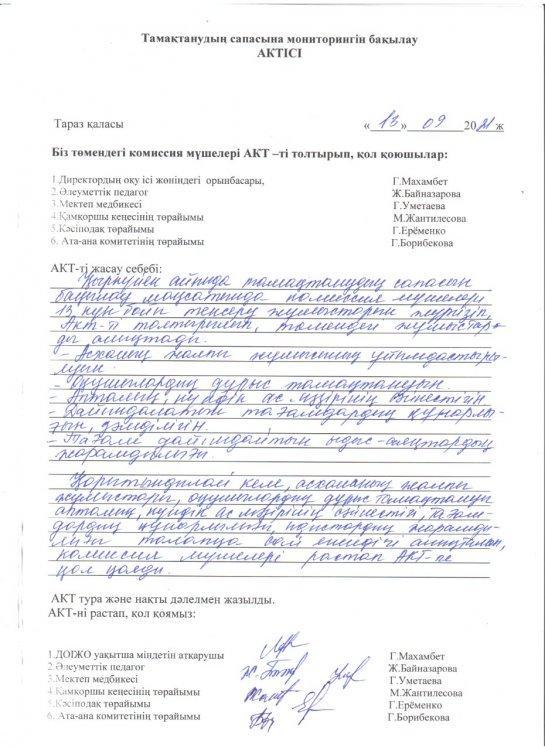 Тамақтанудың сапасына мониторингін бақылау
АКТІСІ
Тараз қаласы
« 13 » 09 2021 ж
Біз төмендегі комиссия мүшелері АКТ –ті толтырып, қол қоюшылар:
1.Директордың оқу ісі жөніндегі орынбасары, Г.Махамбет
2.Әлеуметтік педагог Ж.Байназарова
3.Мектеп медбикесі Г.Уметаева
4.Қамқоршы кеңесінің төрайымы М.Жантилесова
5.Кәсіподақ төрайымы Г.Ерёменко
6. Ата-ана комитетінің төрайымы Г.Борибекова
АКТ-ті жасау себебі:
Қыркүйек айында тамақтанудың сапасын
бақылау мақсатында комиссия мүшелері
13 күн бойы тексеру жұмыстарын жүргізіп,
Акт-ті толтырылып, төмендегі жұмыстар-
ды анықтады.
- Асхананың жалпы жұмысының ұйымдастыры-
луын.
- Оқушылардың дұрыс тамақтануын.
- Апталық, күндік ас мәзірінің сәйкестігін
- Дайындалатын тағамдардың құнарлы-
ғын, дәмділігін.
- Тағам дайындайтын ыдыс-аяқтардың
жарамдылығы.
Қорытындылай келе, асхананың жалпы
жұмыстары, оқушылардың дұрыс тамақтануы
апталық, күндік ас мәзірінің сәйкестігі, тағам-
дардың құнарлылығы, ыдыстардың жарамды-
лығы талапқа сай екендігі анықталып,
комиссия мүшелері растап АКТ-ге
қол қойды.
АКТ тура және нақты дәлелмен жазылды.
АКТ-ні растап, қол қоямыз:
1.ДОІЖО уақытша міндетін атқарушы Г.Махамбет
2.Әлеуметтік педагог Ж.Байназарова
3.Мектеп медбикесі Г.Уметаева
4.Қамқоршы кеңесінің төрайымы М.Жантилесова
5.Кәсіподақ төрайымы Г.Ерёменко
6. Ата-ана комитетінің төрайымы Г.Борибекова